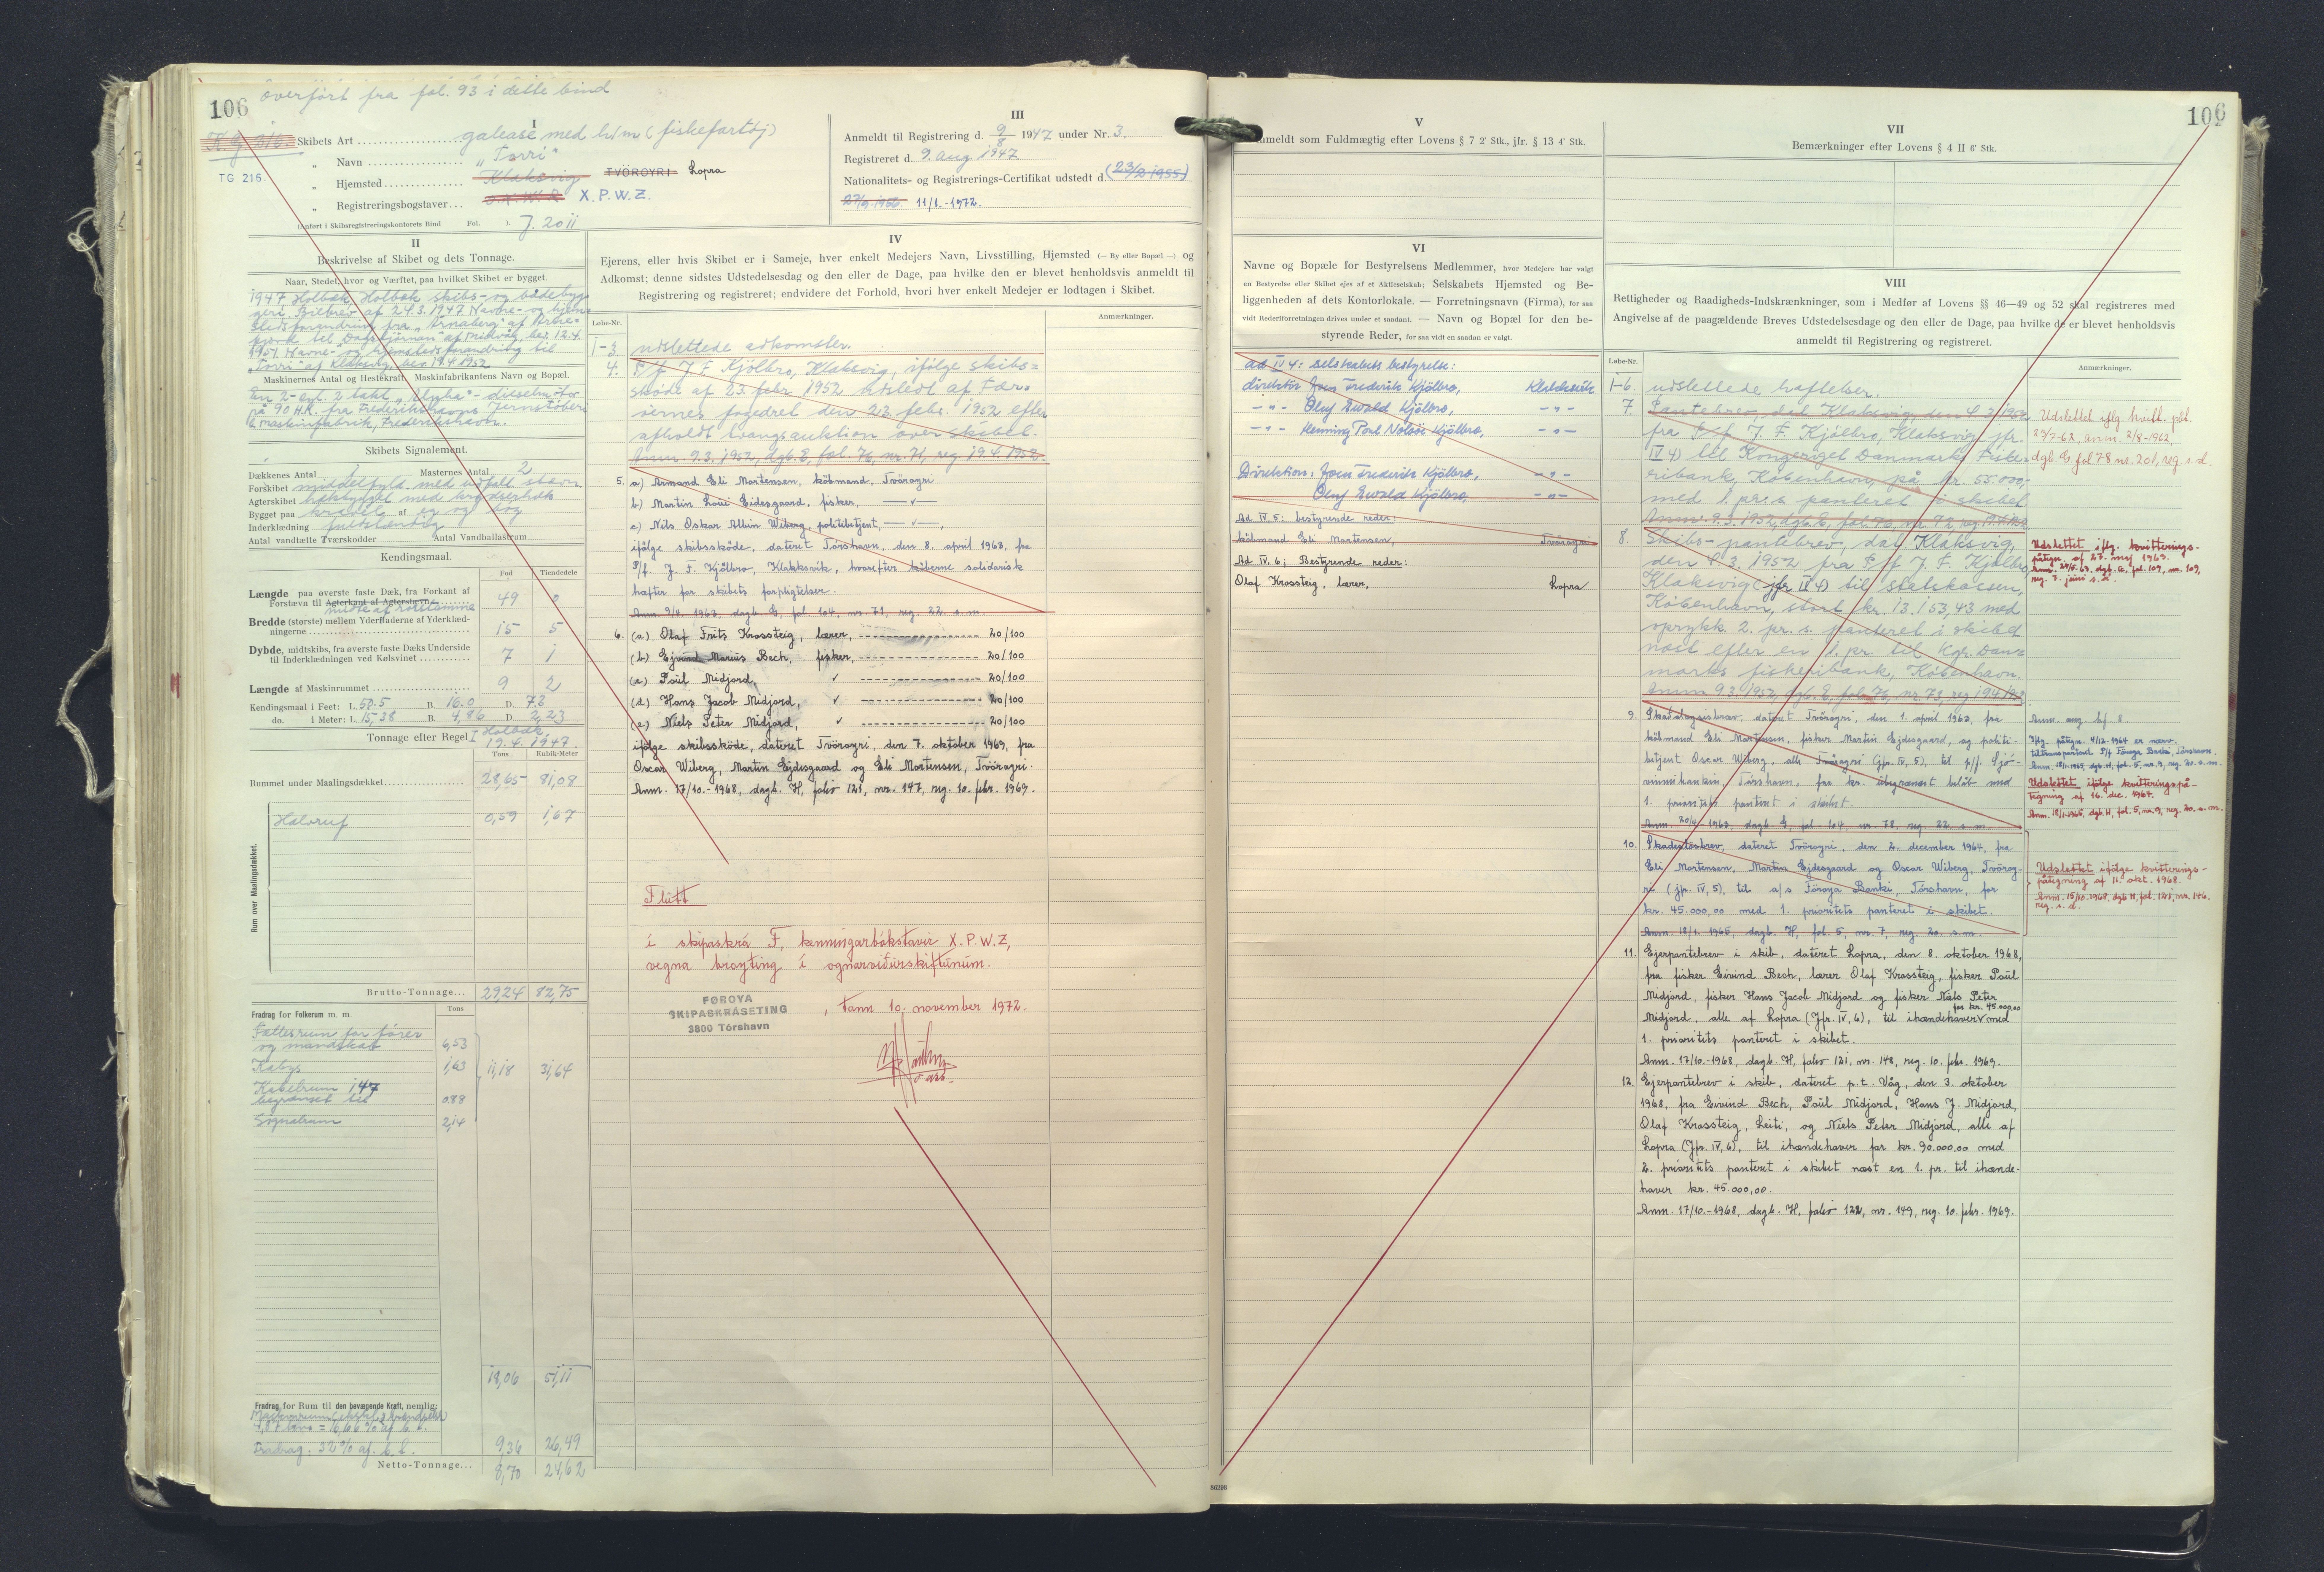 106 overført fra fol. 93 i dette bind
K.g. 316
TG 216
I
Skibets Art galease med h/m (fiskefartøj)
" Navn "Torri"
" Hjemsted Klaksvig TVÖROYRI Lopra
" Registreringsbogstaver X.P.W.Z.
(Anført i Skibsregistreringskontorets Bind Fol. ). J. 2011
II
Beskrivelse af Skibet og dets Tonnage.
Naar, Stedet, hvor og Værftet, paa hvilket Skibet er bygget.
1947 Holbæk, Holbæk skibs- og bådebyg-
geri. Bilbrev af 24.3.1947. Navne- og hjem-
stedsforandring fra "Arnaberg" af Arne-
fjord til "Dagstjørnan" af Mikvåg, ber. 12.4.
1951. Navne- og hjemstedsforandring til
"Torri" af Klaksvig, ber. 19.4.1952
Maskinernes Antal og Hestekraft, Maskinfabrikantens Navn og Bopæl.
En 2-cyl. 2 takt "Alpha"-dieselmotor
på 90 H.K. fra Frederikshavns Jernstøberi
& maskinfabrik, Frederikshavn.
Skibets Signalement.
Dækkenes Antal 1 Masternes Antal 2
Forskibet middelfyld. med udfald. stævn
Agterskibet hækbygget med krydserhæk
Bygget paa kravel af eg og bøg
Inderklædning fuldstændig
Antal vandtætte Tværskodder Antal Vandballastrum
Kendingsmaal.
Fod Tiendedele
Længde paa øverste faste Dæk, fra Forkant af
Forstævn til Agterkant af Agterstævn 49 0
midte af rorstamme
Bredde (største) mellem Yderfladerne af Yderklæd-
ningerne 15 5
Dybde, midtskibs, fra øverste faste Dæks Underside
til Inderklædningen ved Kølsvinet 7 1
Længde af Maskinrummet 9 2
Kendingsmaal i Feet: L. 50.5 B. 16.0 D. 7.3
do. i Meter: L. 15,38 B. 4,86 D. 2,23
Tonnage efter Regel I Holbæk,
19.4.1947.
Tons Kubik-Meter
Rummet under Maalingsdækket 28,65 81,08
Rum over Maalingsdækket.
Halvruf 0,59 1,67
Brutto-Tonnage 29,24 82,75
Fradrag for Folkerum m. m. Tons
Fællesrum for fører
og mandskab 6,53
Kabys 1,63 11,18 31,64
Kabelrum 1,47
begrænset til 0,88
Signalrum 2,14
18,06 51,11
Fradrag for Rum til den bevægende Kraft, nemlig:
4,87 tons = 16,66 % af b. t.
Fradrag: 32 % af b. t. 9,36 26,49
Netto-Tonnage 8,70 24,62
III
Anmeldt til Registrering d. 9/8 1947 under Nr. 3.
Registreret d. 9. aug. 1947
Nationalitets- og Registrerings-Certifikat udstedt d. (23/2 1955)
27/9.1956. 11/1.-1972.
IV
Ejerens, eller hvis Skibet er i Sameje, hver enkelt Medejers Navn, Livsstilling, Hjemsted (— By eller Bopæl —) og
Adkomst; denne sidstes Udstedelsesdag og den eller de Dage, paa hvilke den er blevet henholdsvis anmeldt til
Registrering og registreret; endvidere det Forhold, hvori hver enkelt Medejer er lodtagen i Skibet.
Løbe-Nr. Anmærkninger.
1-3. udslettede adkomster.
4. P/f J. F. Kjølbro, Klaksvig, ifølge skibs-
skøde af 23. febr. 1952 udstedt af Fær-
øernes fogedret den 23. febr. 1952 efter
afholdt tvangsauktion over skibet.
Anm. 9.3.1952, dgb. E, fol. 76, nr. 71, reg. 19.4.1952.
5. a) Armand Eli Mortensen, köbmand, Tvöroyri
b) Martin Loui Eidesgaard, fisker, —"—
c) Nils Oskar Albin Wiberg, politibetjent, —"—,
ifölge skibsskøde, dateret Tórshavn, den 8. april 1963, fra
P/f. J. F. Kjölbro, Klakksvik, hvorefter köberne solidarisk
hæfter for skibets forpligtelser.
Anm. 9/4. 1963, dagb. G, fol. 104, nr. 71, reg. 22. s. m.
6. (a) Olaf Frits Krossteig, lærer, 20/100
(b) Ejvind Marius Bech, fisker, 20/100
(c) Poul Midjord, " 20/100
(d) Hans Jacob Midjord, " 20/100
(e) Niels Peter Midjord, " 20/100
ifölge skibsskøde, dateret Tvöroyri, den 7. oktober 1969, fra
Oscar Wiberg, Martin Ejdesgaard og Eli Mortensen, Tvöroyri.
Anm. 17/10.-1968, dagb. H, folio 121, nr. 147, reg. 10. febr. 1969.
Flutt
í skipaskrá F, kenningarbókstavir X.P.W.Z,
vegna broyting í ognarviðurskiftunum.
FØROYA
SKIPASKRÁSETING
3800 Tórshavn
, tann 10. november 1972.
V
Anmeldt som Fuldmægtig efter Lovens § 7 2' Stk., jfr. § 13 4' Stk.
VI
Navne og Bopæle for Bestyrelsens Medlemmer, hvor Medejere har valgt
en Bestyrelse eller Skibet ejes af et Aktieselskab; Selskabets Hjemsted og Be-
liggenheden af dets Kontorlokale. — Forretningsnavn (Firma), for saa
vidt Rederiforretningen drives under et saadant. — Navn og Bopæl for den be-
styrende Reder, for saa vidt en saadan er valgt.
ad IV 4: selskabets bestyrelse:
direktör Joen Frederik Kjölbro, Klaksvik
—"— Oluf Ewald Kjölbro, —"—
—"— Henning Poul Nolsöe Kjölbro, —"—
Direktion: Joen Frederik Kjölbro, —"—
Oluf Ewald Kjölbro, —"—
Ad IV, 5: bestyrende reder:
köbmand Eli Mortensen, Tvöroyri
Ad IV. 6; Bestyrende reder:
Olaf Krossteig, lærer, Lopra
86298
106
VII
Bemærkninger efter Lovens § 4 II 6' Stk.
VIII
Rettigheder og Raadigheds-Indskrænkninger, som i Medfør af Lovens §§ 46—49 og 52 skal registreres med
Angivelse af de paagældende Breves Udstedelsesdage og den eller de Dage, paa hvilke de er blevet henholdsvis
anmeldt til Registrering og registreret.
Løbe-Nr. Anmærkning.
1-6. udslettede hæftelser.
7. Pantebrev, dat. Klaksvig, den 8.3.1952
fra P/f J. F. Kjølbro, Klaksvig jfr.
IV 4) til Kongeriget Danmarks Fiske-
ribank, København, på kr. 55.000,-
med 1. pr.s. panteret i skibet
Anm. 9.3.1952, dgb. E, fol. 76, nr. 72, reg. 19.4.1952
Udslettet iflg. kvitt. påt.
27/7-62, anm. 2/8-1962,
dgb. G, fol 78 nr. 201, reg. s. d.
8. Skibs-pantebrev, dat. Klaksvig,
den 8.3.1952 fra P/f J. F. Kjølbro
Klaksvig (jfr. IV 4) til statskassen,
København, stort kr. 13.153,43 med
oprykk. 2. pr. s. panteret i skibet
næst efter en 1. pr. til Kgr. Dan-
marks fiskeribank, København.
Anm. 9.3.1952, dgb. E, fol. 76, nr. 73, reg. 19.4.1952
Udslettet iflg. kvitterings-
påtegn. af 27. maj 1963.
Anm. 29/5.63, dgb. G, fol. 109, nr. 109,
reg. 7. juni s. å.
9. Skadesløsbrev, dateret Tvöroyri, den 1. april 1963, fra
köbmand Eli Mortensen, fisker Martin Ejdesgaard, og politi-
betjent Oscar Wiberg, alle Tvöroyri (jfr. IV, 5), til p/f. Sjó-
vinnubankin, Tórshavn, for kr. ubegrænset beløb med
1. prioritets panteret i skibet.
Anm. 20/4-1963, dagb. G, fol. 104, nr. 78, reg. 22. s. m.
Anm. ang. hf. 8.
Iflg. påtegn. 4/12-1964 er nærv.
transporteret P/f Föroya Banki, Tórshavn.
Anm. 18/1-1965, dgb. H, fol. 5, nr. 9, reg. 20. s. m.
Udslettet ifölge kvitteringspå-
tegning af 16. dec. 1964.
Anm. 18/1-1965, dgb. H, fol. 5, nr. 9, reg. 20. s. m.
10. Skadeslosbrev, dateret Tvöroyri, den 2. december 1964, fra
Eli Mortensen, Martin Ejdesgaard og Oscar Wiberg, Tvöroy-
ri (jfr. IV, 5), til a/s Föroya Banki, Tórshavn, for
kr. 45.000,00 med 1. prioritets panteret i skibet.
Anm. 18/1. 1965, dagb. H, fol. 5, nr. 7, reg. 20. s. m.
Udslettet ifölge kvitterings-
påtegning af 11. okt. 1968.
Anm. 15/10-1968, dgb. H, fol. 121, nr. 146.
reg. s. d.
11. Ejerpantebrev i skib, dateret Lopra, den 8. oktober 1968,
fra fisker Eivind Bech, lærer Olaf Krossteig, fisker Poul
Midjord, fisker Hans Jacob Midjord og fisker Niels Peter
for kr. 45.000,00
Midjord, alle af Lopra (Jfr. IV, 6), til ihændehaver med
1. prioritets panteret i skibet.
Anm. 17/10.-1968, dagb. H, folio 121, nr. 148, reg. 10. febr. 1969.
12. Ejerpantebrev i skib, dateret p.t. Våg, den 3. oktober
1968, fra Eivind Bech, Poul Midjord, Hans J. Midjord,
Olaf Krossteig, Leiti, og Niels Peter Midjord, alle af
Lopra (Jfr. IV, 6), til ihændehaver for kr. 90.000,00 med
2. prioritets panteret i skibet næst en 1. pr. til ihænde-
haver kr. 45.000,00.
Anm. 17/10.-1968, dagb. H, folio 122, nr. 149, reg. 10. febr. 1969.